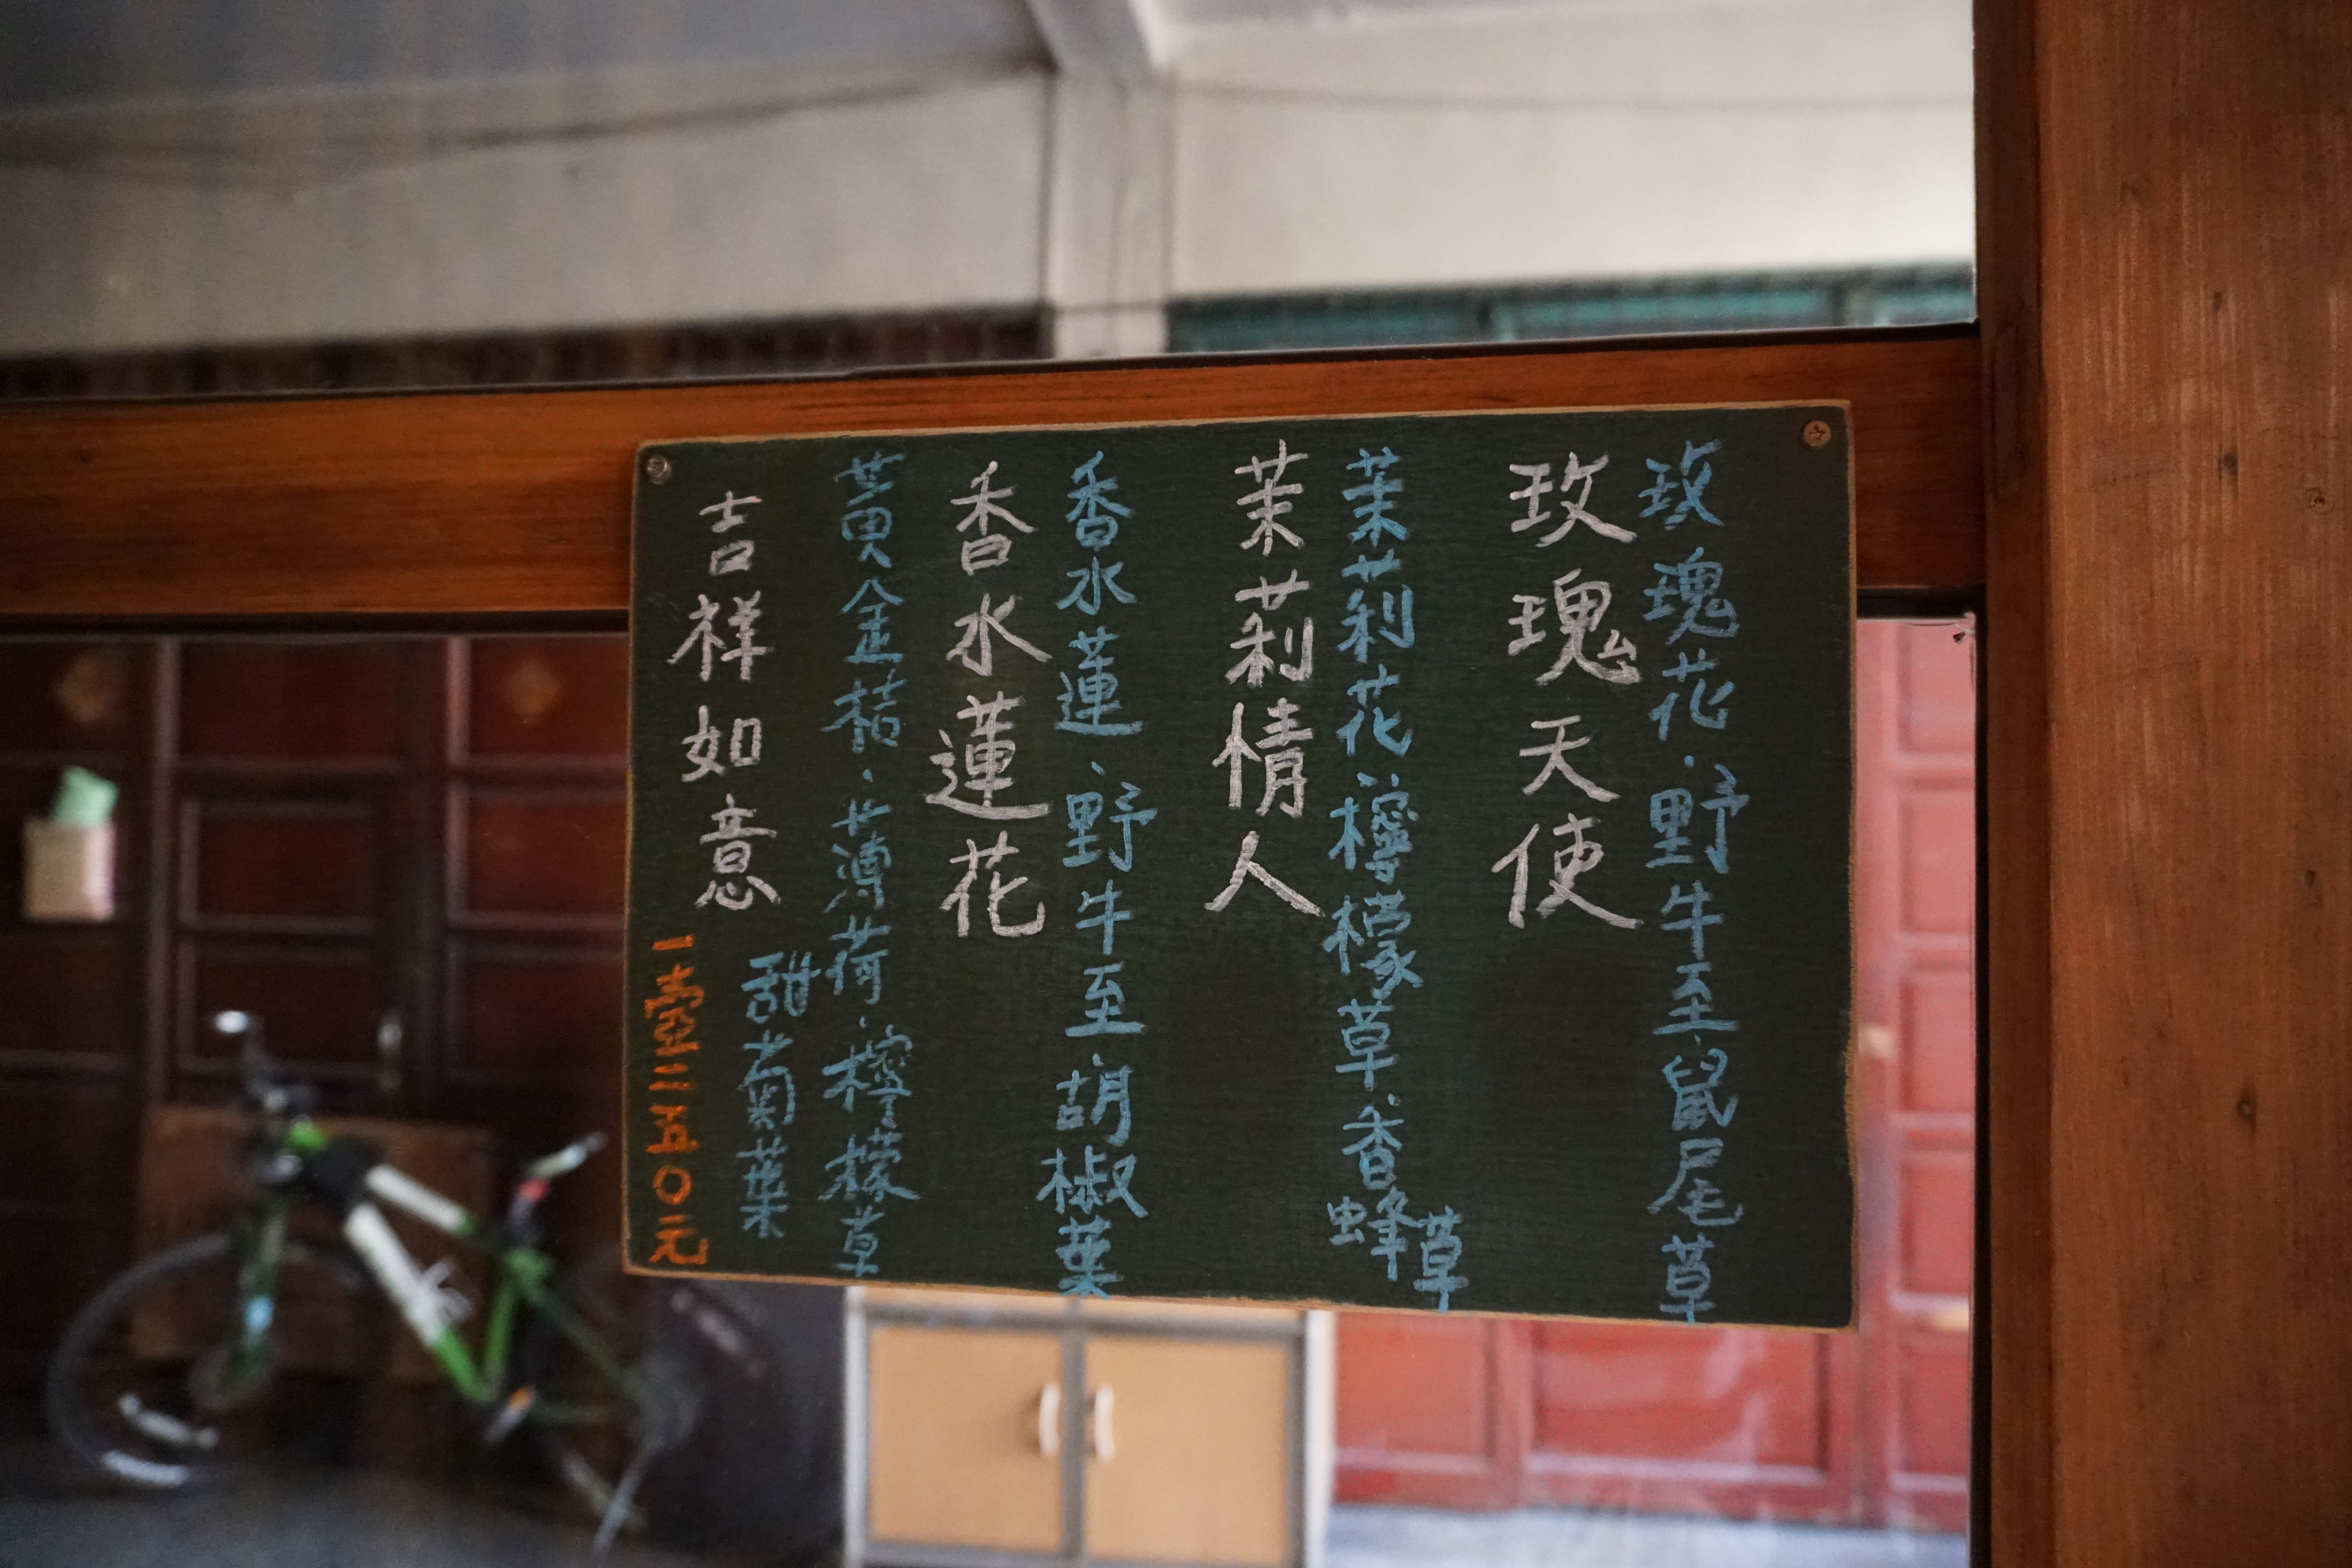 玫瑰花·野牛至·鼠尾草
玫瑰天使
茉莉花·檸檬草·香蜂草
茉莉情人
香水蓮·野牛至·胡椒葉
香水蓮花
黃金桔·薄荷·檸檬草
甜菊葉
吉祥如意
一壺二五〇元